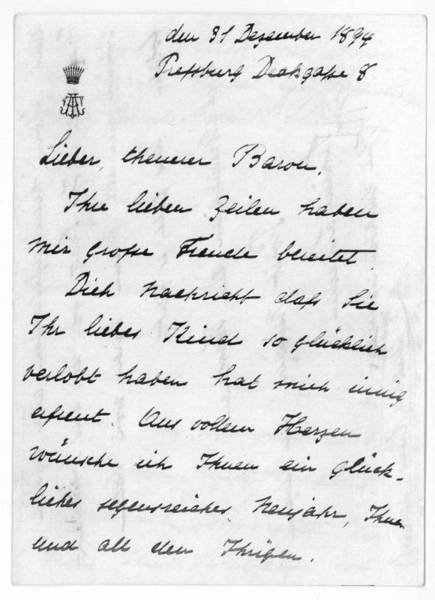 den 31 Dezember 1894
Pressburg Deakgasse 8
Lieber, theuerer Baron.
Ihre lieben Zeilen haben
mir große Freude bereitet.
Dich Nachricht daß Sie
Ihr liebes Kind so glücklich
verlobt haben hat mich innig
erfreut. Aus vollem Herzen
wünsche ich Ihnen ein glück-
liches segensreiches, Neujahr, Ihnen
und all den Ihrigen.